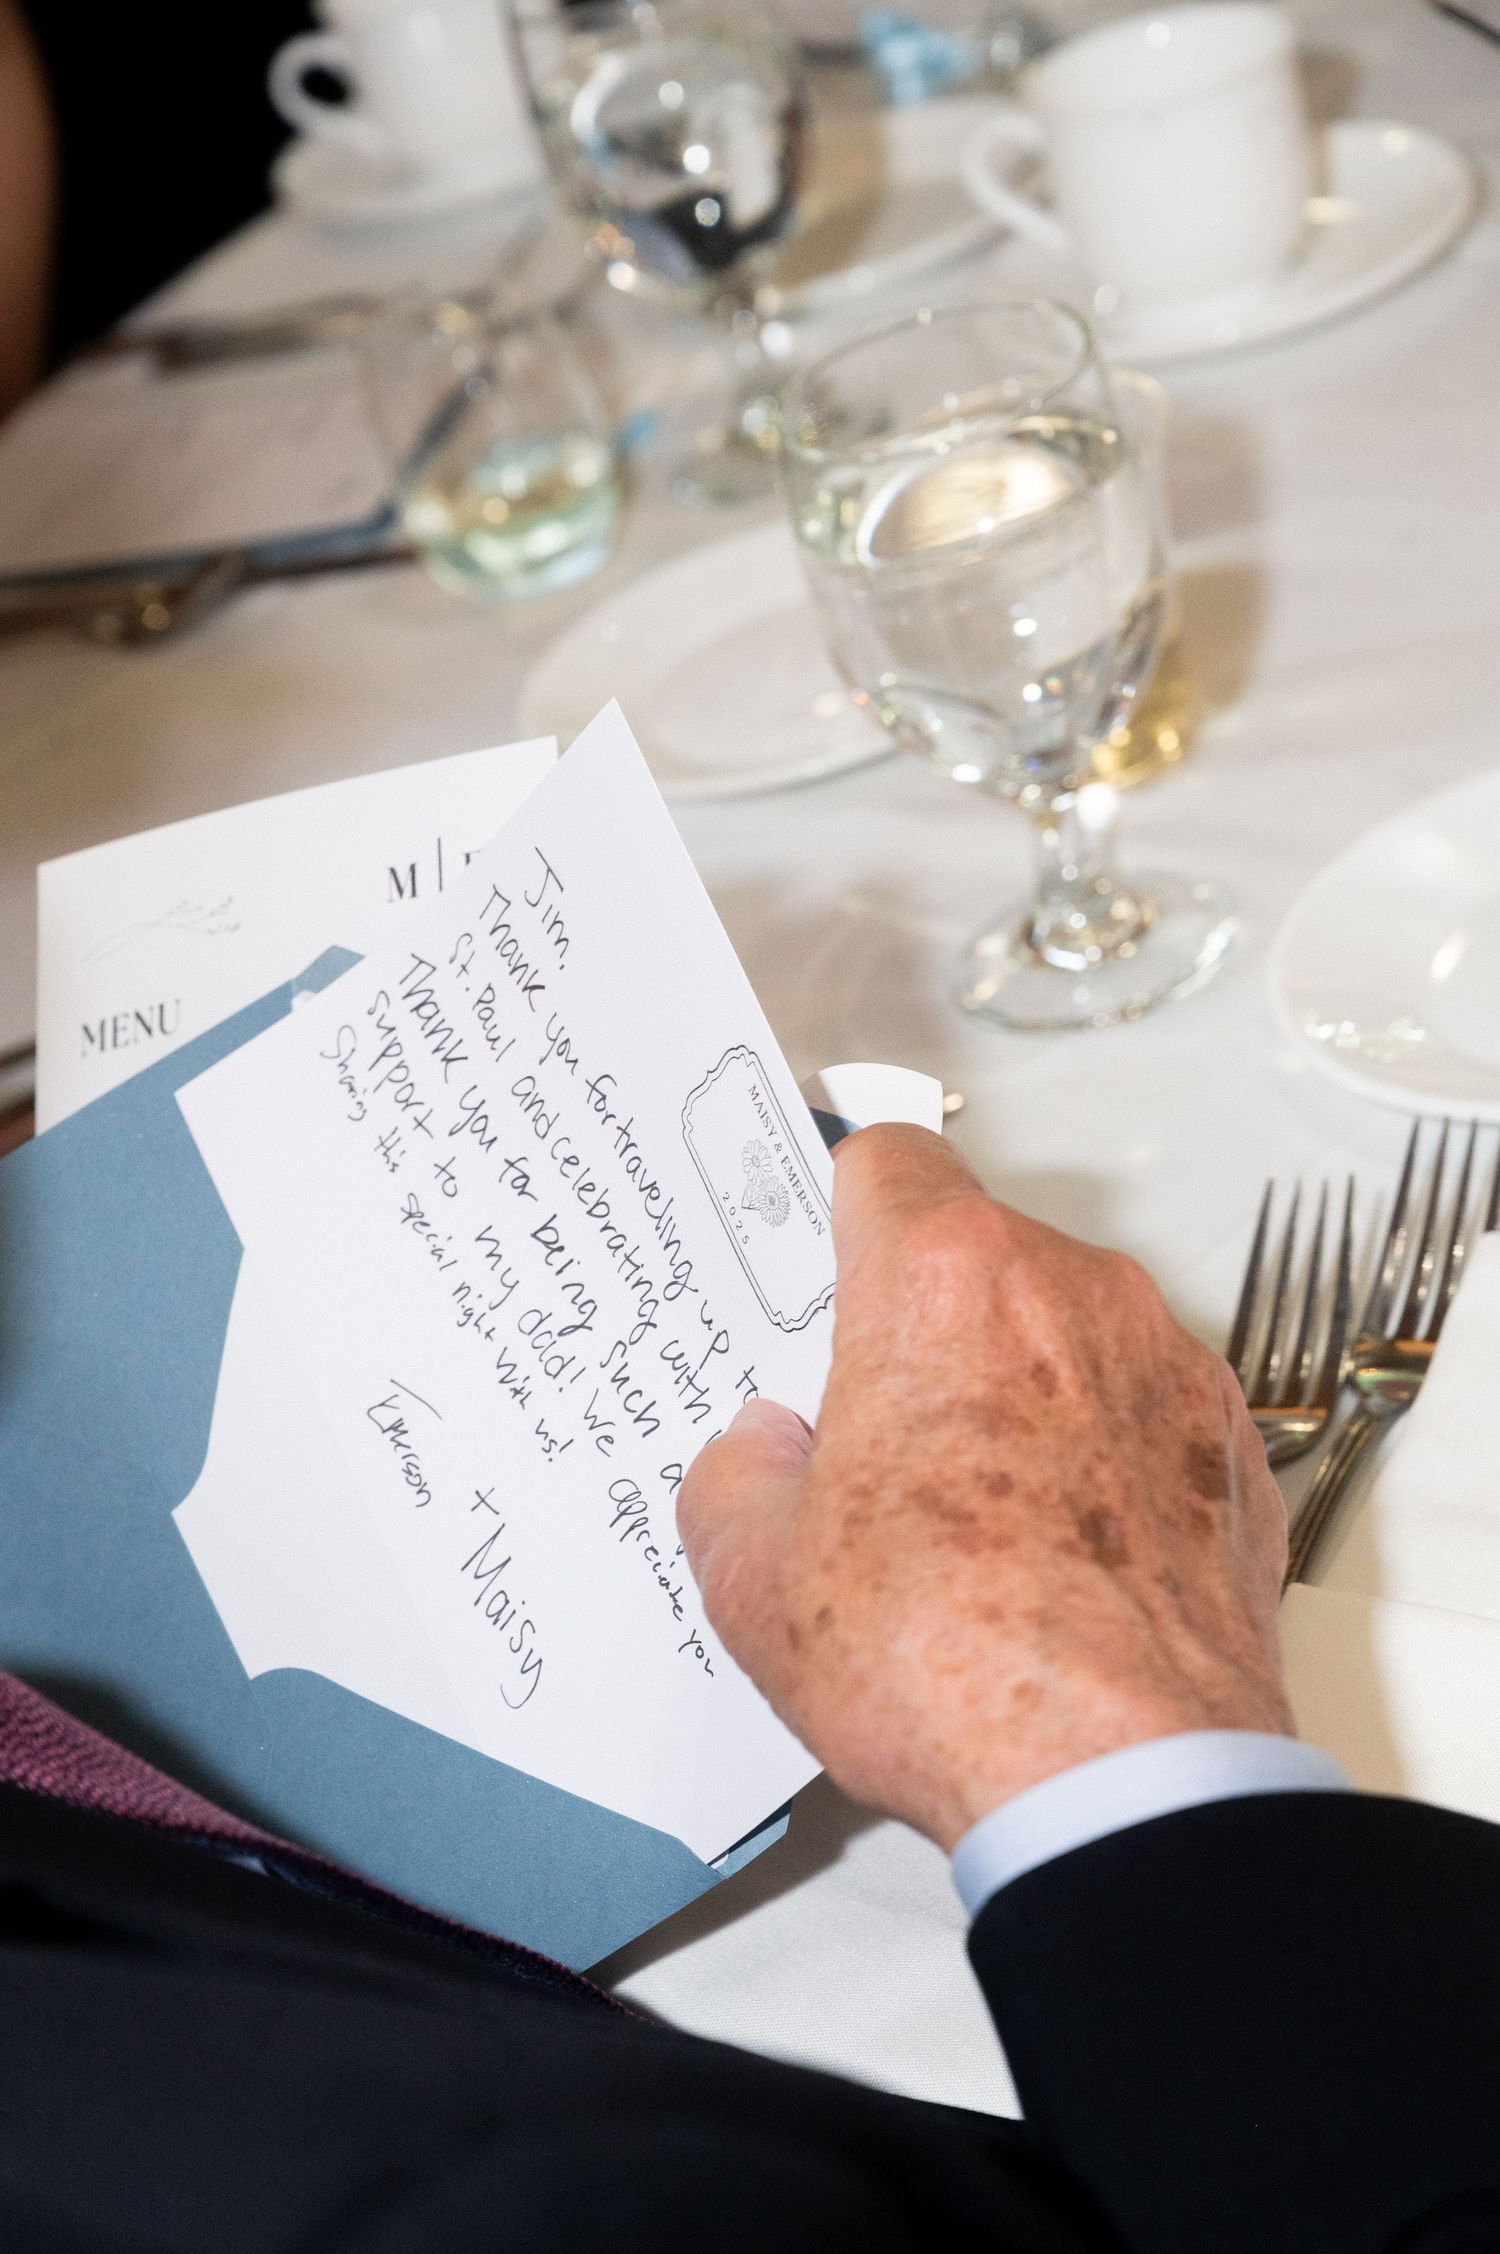 M |
MENU
MAISY & EMERSON
2025
Jim,
Thank you for traveling up to
St. Paul and celebrating with
Thank you for being such a
support to my dad! We appreciate you
Sharing this special night with us!
Emerson
+ Maisy